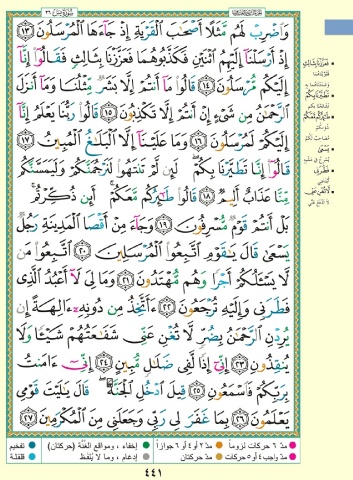 وَٱضْرِبْ لَهُم مَّثَلًا أَصْحَٰبَ ٱلْقَرْيَةِ إِذْ جَآءَهَا ٱلْمُرْسَلُونَ ١٣
إِذْ أَرْسَلْنَآ إِلَيْهِمُ ٱثْنَيْنِ فَكَذَّبُوهُمَا فَعَزَّزْنَا بِثَالِثٍ فَقَالُوٓا۟ إِنَّآ
إِلَيْكُم مُّرْسَلُونَ ١٤ قَالُوا۟ مَآ أَنتُمْ إِلَّا بَشَرٌ مِّثْلُنَا وَمَآ أَنزَلَ
ٱلرَّحْمَٰنُ مِن شَىْءٍ إِنْ أَنتُمْ إِلَّا تَكْذِبُونَ ١٥ قَالُوا۟ رَبُّنَا يَعْلَمُ إِنَّآ
إِلَيْكُمْ لَمُرْسَلُونَ ١٦ وَمَا عَلَيْنَآ إِلَّا ٱلْبَلَٰغُ ٱلْمُبِينُ ١٧
قَالُوٓا۟ إِنَّا تَطَيَّرْنَا بِكُمْ لَئِن لَّمْ تَنتَهُوا۟ لَنَرْجُمَنَّكُمْ وَلَيَمَسَّنَّكُم
مِّنَّا عَذَابٌ أَلِيمٌ ١٨ قَالُوا۟ طَٰٓئِرُكُم مَّعَكُمْ أَئِن ذُكِّرْتُم
بَلْ أَنتُمْ قَوْمٌ مُّسْرِفُونَ ١٩ وَجَآءَ مِنْ أَقْصَا ٱلْمَدِينَةِ رَجُلٌ
يَسْعَىٰ قَالَ يَٰقَوْمِ ٱتَّبِعُوا۟ ٱلْمُرْسَلِينَ ٢٠ ٱتَّبِعُوا۟ مَن
لَّا يَسْـَٔلُكُمْ أَجْرًا وَهُم مُّهْتَدُونَ ٢١ وَمَا لِىَ لَآ أَعْبُدُ ٱلَّذِى
فَطَرَنِى وَإِلَيْهِ تُرْجَعُونَ ٢٢ ءَأَتَّخِذُ مِن دُونِهِۦٓ ءَالِهَةً إِن
يُرِدْنِ ٱلرَّحْمَٰنُ بِضُرٍّ لَّا تُغْنِ عَنِّى شَفَٰعَتُهُمْ شَيْـًٔا وَلَا
يُنقِذُونِ ٢٣ إِنِّىٓ إِذًا لَّفِى ضَلَٰلٍ مُّبِينٍ ٢٤ إِنِّىٓ ءَامَنتُ
بِرَبِّكُمْ فَٱسْمَعُونِ ٢٥ قِيلَ ٱدْخُلِ ٱلْجَنَّةَ قَالَ يَٰلَيْتَ قَوْمِى
يَعْلَمُونَ ٢٦ بِمَا غَفَرَ لِى رَبِّى وَجَعَلَنِى مِنَ ٱلْمُكْرَمِينَ ٢٧
مدّ ٦ حركات لزوماً مدّ ٢ أو ٤ أو ٦ جوازاً إخفاء، ومواقع الغُنّة (حركتان) تفخيم
مدّ واجب ٤ أو ٥ حركات مدّ حركتان إدغام، وما لا يُلفَظ قلقلة
٤٤١